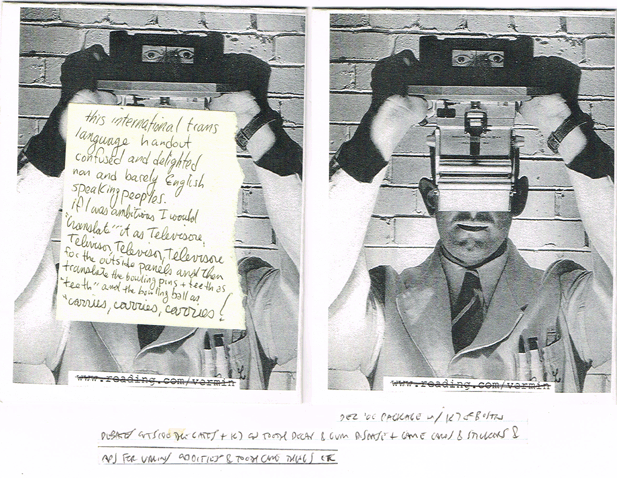 this international trans
language handout
confused and delighted
non and barely English
speaking peoples.
if I was ambitious I would
"translate" it as Televisore,
Televisor, Televisen, Televisore
for the outside panels and then
translate the bowling pins + teeth as
"teeth" and the bowling ball as
"carries, carries, carries!
www.reading.com/vermin
www.reading.com/vermin
PACKAGE W/
TOOTH DECAY & GUM DISEASE + GAME CARDS & STICKERS &
ADS FOR VARIOUS ODDITIES & TOOTH CARE